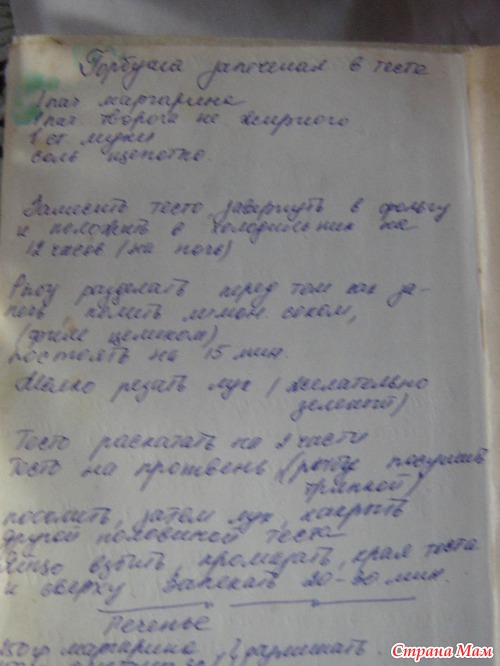 Горбуша запеченая в тесте
1 пач маргарина
1 пач творога не жирного
1 ст. муки
соль щепотка.
Замесить тесто, завернуть в фольгу
и положить в холодильник на
12 часов (на ночь)
Рыбу разделать перед том как за-
печь полить лимон. соком,
(филе целиком)
постоять на 15 мин.
Мелко резать лук (желательно
зеленый)
Тесто раскатать на 2 части
тесто на протвень, (рыбу посушить
тряпкой)
посолить, затем лук, накрыть
другой половиной теста
Яйцо взбить, промазать, края теста
и сверху Запекать 20-30 мин.
Печенье
250 гр маргарина,
Страна Мам